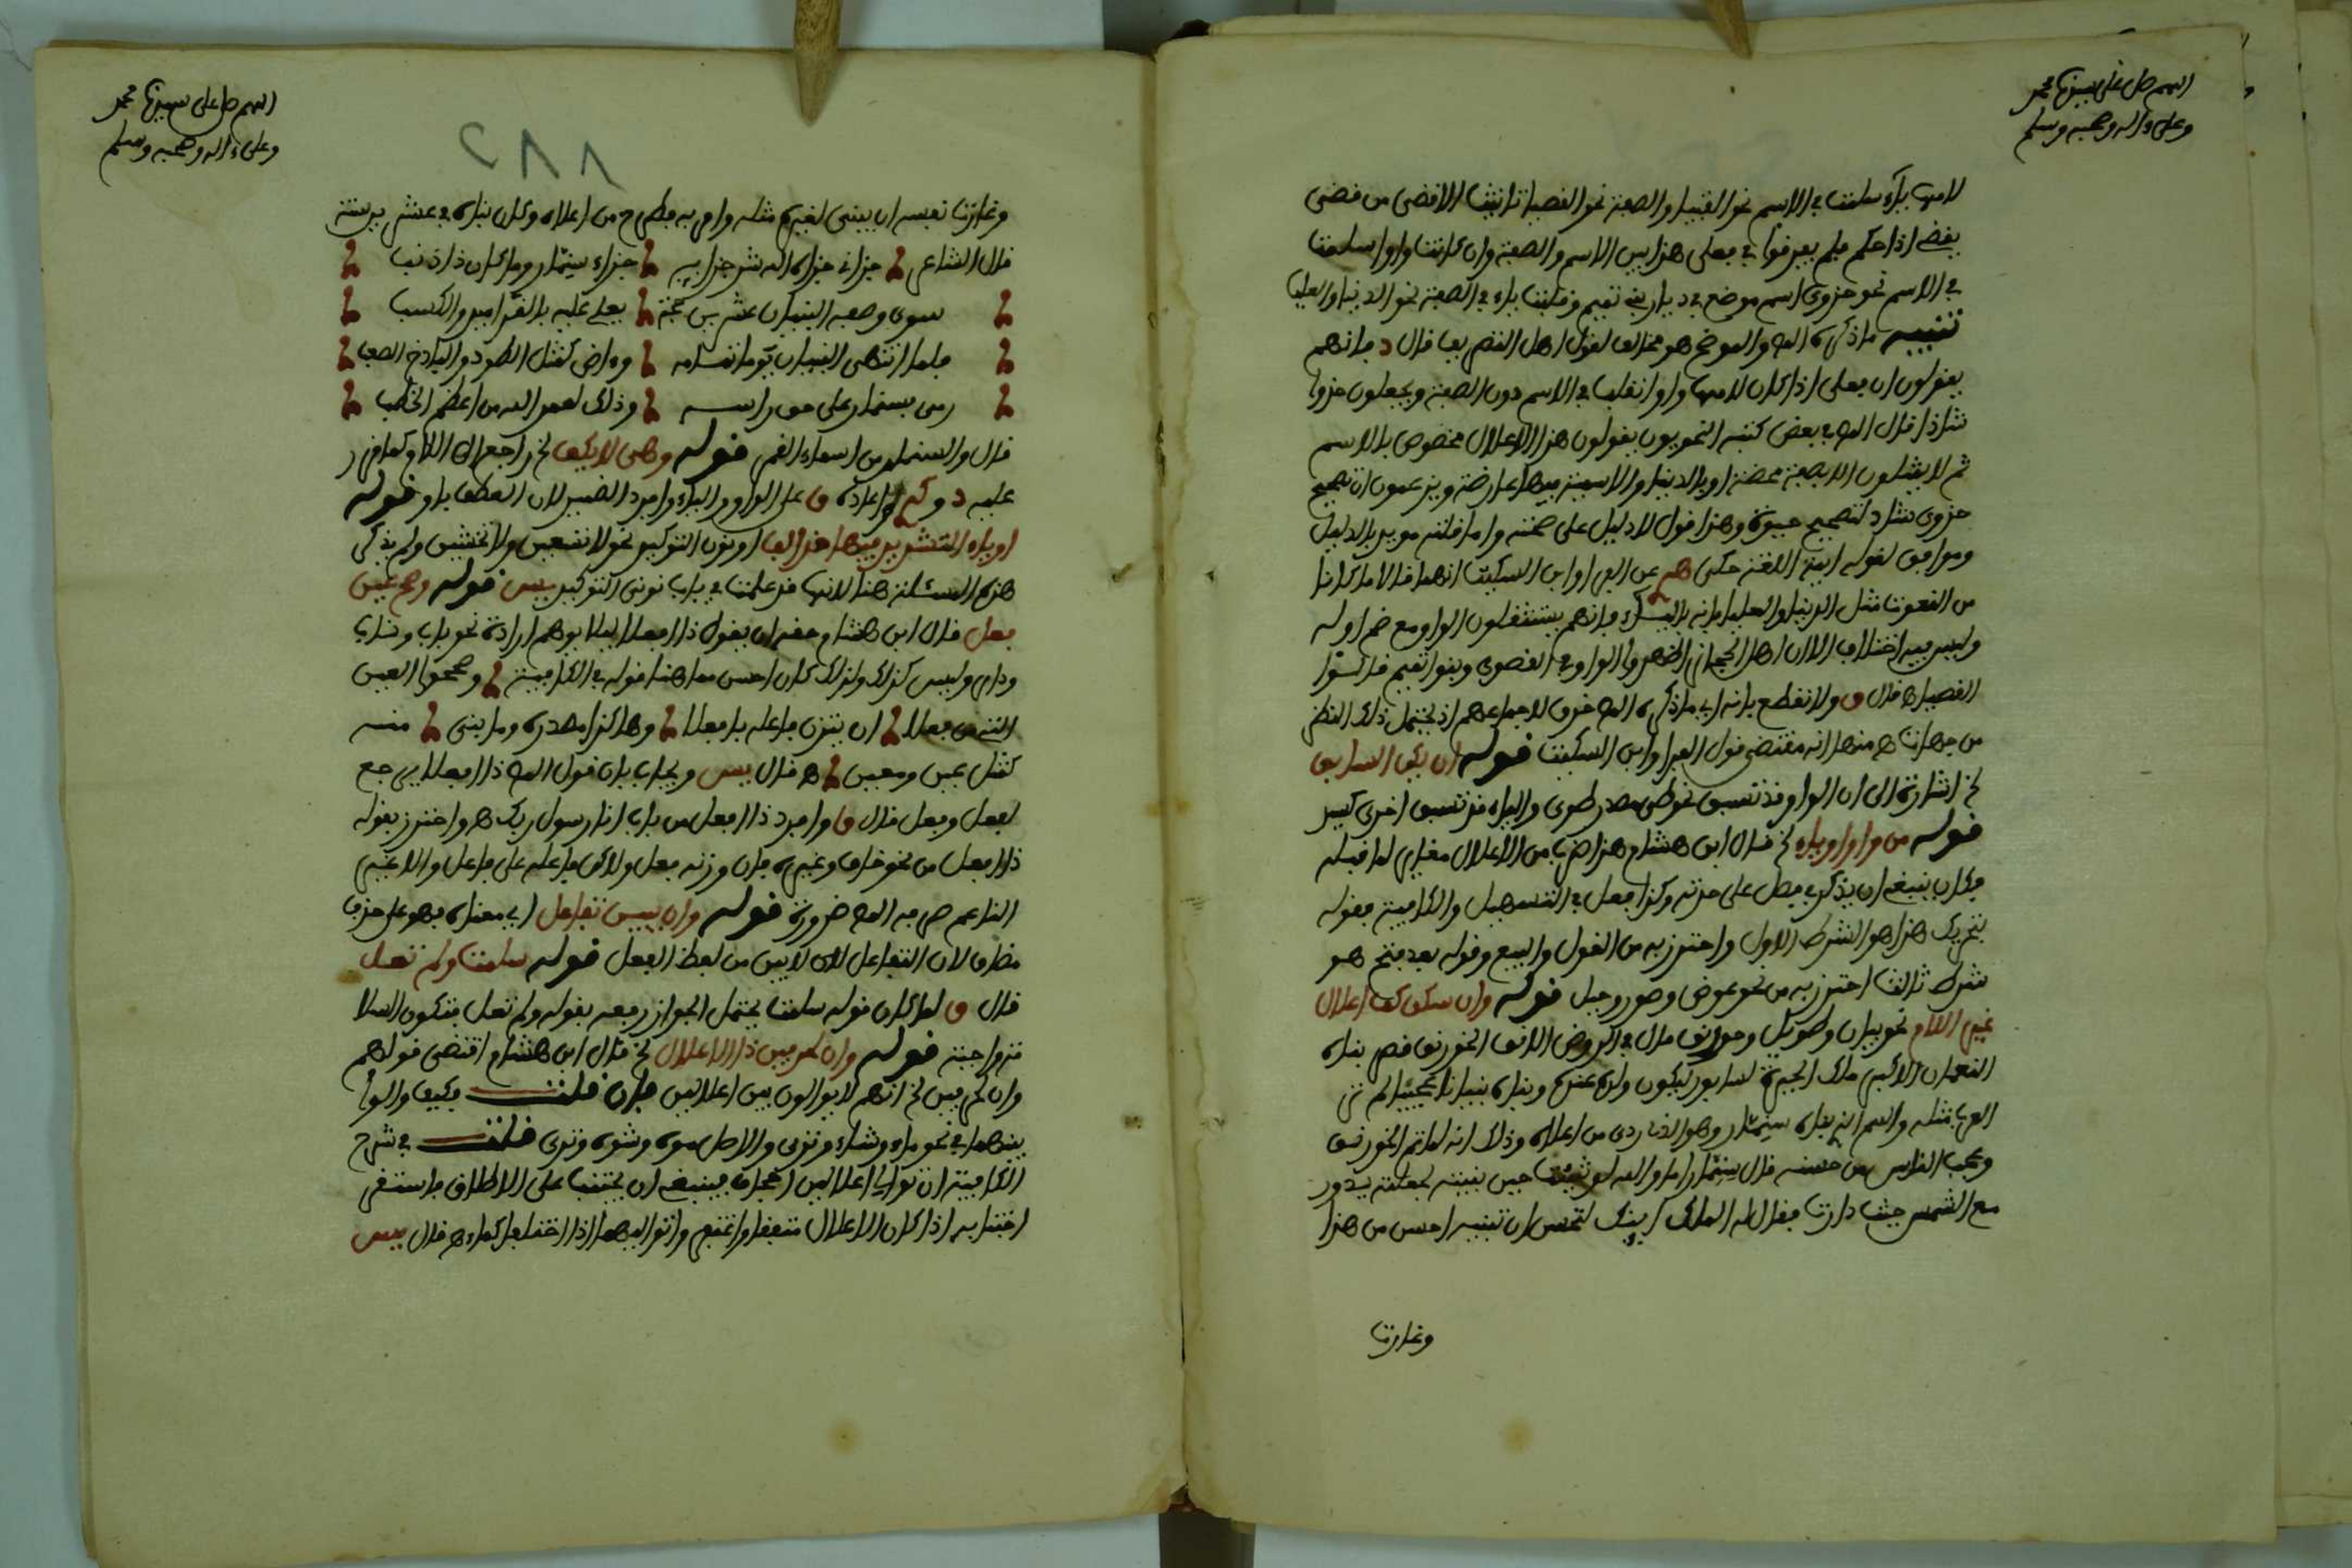 اللهم صل على سيدنا محمد
وعلى ءاله وصحبه وسلم
لامها ياء سلمت في الاسم نحو الفتيا والصفة نحو القصيا تانيث الاقضى من قضى
يقضي اذا حكم فلم يفرقوا في فعلى هذا بين الاسم والصفة وان كانت واوا سلمت
في الاسم نحو حزوى اسم موضع في ديار بني تميم وقلبت ياء في الصفة نحو الدنيا والعليا
تنبيه ما ذكره المص والموضح هو مخالف لقول اهل التصريف قال د فانهم
يقولون ان فعلى اذا كان لامها واوا تقلب في الاسم دون الصفة ويجعلون حزوى
شاذا قال المص في بعض كتبه النحويون يقولون هذا الاعلال مخصوص بالاسم
ثم لا يمثلون الا بصفة محضة او بالدنيا والاسمية فيها عارضة ويزعمون ان تصحيح
حزوى شاذ كتصحيح حيوة وهذا قول لا دليل على صحته وما قلته مويد بالدليل
وموافق لقول ايمة اللغة حكى هر عن الفراء وابن السكيت انهما قالا ما كان
من النعوت مثل الدنيا والعليا فانه بالياء فانهم يستثقلون الواو مع ضم اوله
وليس فيه اختلاف الا ان اهل الحجاز اظهروا الواو في القصوى وبنو تميم قالوا
القصيا ه قال ق ولا نقطع بانه اي ما ذكره المص خرق لاجماعهم اذ يحتمل ذلك النظر
من جهات ه منها انه مقتضى قول الفراء وابن السكيت قوله ان يكن السابق
لخ اشارة الى ان الواو قد تسبق نحو طي مصدر طوى والياء قد تسبق اخرى كسيد
قوله من واو او ياء لخ قال ابن هشام هذا ضرب من الاعلال مغاير لما قبله
فكان ينبغي ان يذكر فصل على حدته وكذا فعل في التسهيل والكافية فقوله
بتحريك هذا هو الشرط الاول واحترز به من القول والبيع وقوله بعد فتح هو
شرط ثالث احترز به من نحو عوض وصور وحيل قوله وان سكن كف اعلال
غير اللام نحو بيان وطويل وخورنق قال في الروض الانف الخورنق قصر بناه
النعمان الاكبر ملك الحيرة لسابور ليكون ولده عنده وبناه بنيانا عجيبا لم تر
العرب مثله واسم الذي بناه سنمار وهو الذي ردي من اعلاه وذلك انه لما تم الخورنق
وعجب الناس من حسنه قال سنمار اما والله لو شئت حين بنيته جعلته يدور
مع الشمس حيث دارت فقال له الملك اينك لتحسن ان تبنيه احسن من هذا
وغارت
اللهم صل على سيدنا محمد
وعلى ءاله وصحبه وسلم
٢٨٨
وغارت نفسه ان يبني لغيره مثله وامر به فطرح من اعلاه وكان بناه في عشرين سنة
قال الشاعر جزاني جزاه الله شر جزايه جزاء سنمار وما كان ذا ذنب
سوى وصفه البنيان عشرين حجة يعلي عليه بالقراميد والسكب
فلما انتهى البنيان يوما تمامه وءاض كمثل الطود والباذخ الصعب
رمى بسنمار على حق راسه وذاك لعمر الله من اعظم الخطب
قال والسنمار من اسماء القمر قوله وهي لا يكف لخ راجع الى اللام كما قرر
عليه د و اعاده ق على الواو والياء وافرد الضمير لان العطف باو قوله
او ياء التشديد فيها قد الف او نون التوكيد نحو لا تسعين ولا تخشين ولم يذكر
هذه المسئلة هنا لانها قد علمت في باب نوني التوكيد يس قوله وصح عين
فعل قال ابن هشام حقه ان يقول ذا افعل ليلا يوهم ارادة نحو باب وناب
ودار وليس كذلك ولذلك كان احسن مما هنا قوله في الكافية وصححوا العين
التي من فعلا ان يتزن فاعله بافعلا وهكذا مصدره وما بني منه
كمثل عين ومعين ه قال يس ويجاب بان قول المص ذا افعل يرجع
لفعل وفعل قال ق وافرد ذا افعل من باب انا رسول ربك ه واحترز بقوله
ذا افعل من نحو خاف وغيره فان وزنه فعل ولاكن فاعله على فاعل والاغير
الناعم صرفه المص ضرورة قوله وان يبن تفاعل اي معناه فهو على حذف
مضاف لان التفاعل لا يبين من لفظ الفعل قوله سلمت ولم تعل
قال ق لما كان قوله سلمت يحتمل الجواز رفعه بقوله ولم تعل فتكون السلا
مة واجبة قوله وان لحرفين ذا الاعلال لخ قال ابن هشام اقتضى قولهم
وان لحرفين لخ انهم لا يوالون بين اعلالين فان قلت فكيف والوا
بينهما في نحو ماء وشاء وترى والاصل موه وشوه وترءى قلت في شرح
الكافية ان توالي اعلالين اجحاف فينبغي ان يجتنب على الاطلاق فاستغنى
اجتنابه اذا كان الاعلال متفقا واغتفر تواليهما اذا اختلفا كماء ه قال يس